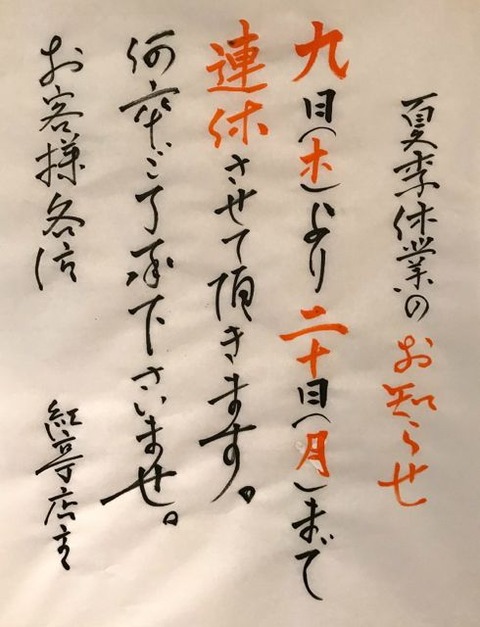 夏季休業のお知らせ
九日(木)より二十日(月)まで
連休させて頂きます。
何卒ご了承下さいませ。
お客様各位
紅寿店主